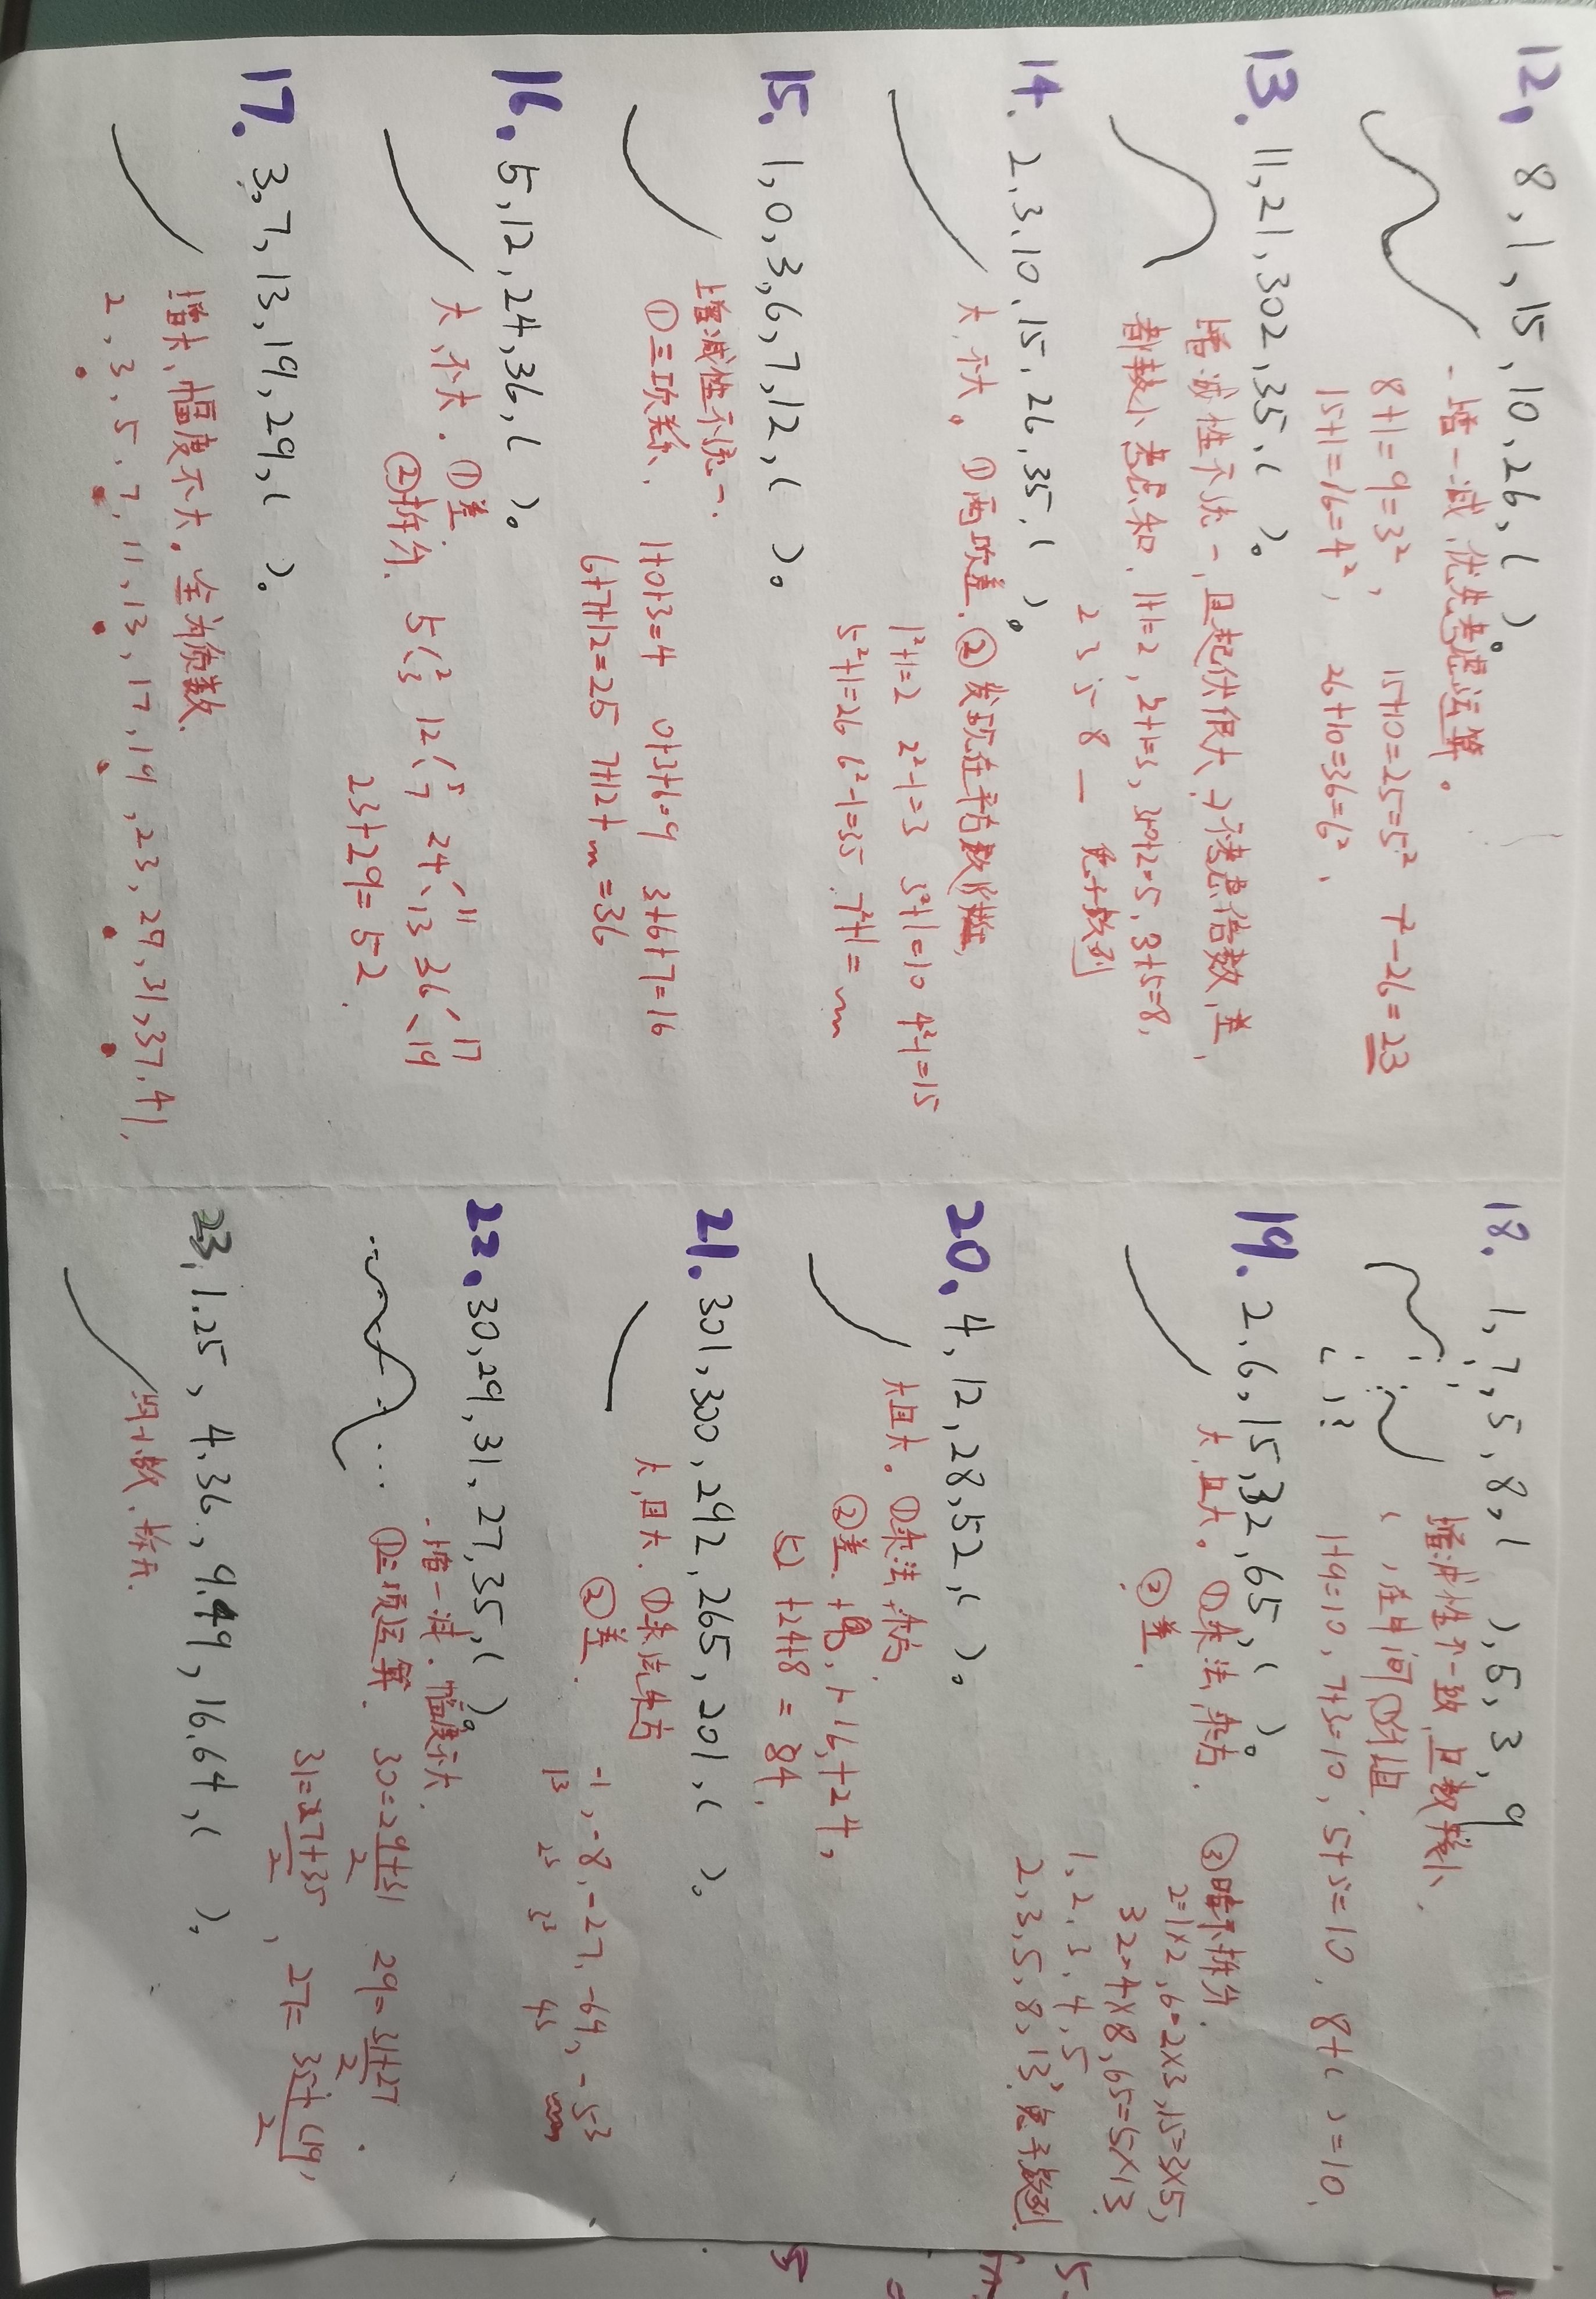 12, 8,1,15,10,26,( )。
一增一减,优先考虑运算。
8+1=9=3², 15+10=25=5² 7²-26=23
15+1=16=4², 26+10=36=6²,
13. 11,21,302,35,( )。
增减性不统一,且起伏很大→不考虑倍数,差,
都较小 考虑和. 1+1=2, 2+1=3, 3+0+2=5, 3+5=8,
2 3 5 8 —
14. 2,3,10,15,26,35,( )。
大,不大。①两项差、②发现在平方数附近,
1²+1=2 2²-1=3 3²+1=10 4²-1=15
5²+1=26 6²-1=35 7²+1=
15. 1,0,3,6,7,12,( )。
增减性不统一.
①三项和、 1+0+3=4 0+3+6=9 3+6+7=16
6+7+12=25 7+12+ =36
16. 5,12,24,36,( )。
大,不大. ①差
②拆分. 5 2 3 12 5 7 24 11 13 36 17 19
23+29=52.
17. 3,7,13,19,29,( )。
增大,幅度不大。全为质数.
2,3,5,7,11,13,17,19,23,29,31,37,41.
18. 1,7,5,8,( ),5,3,9
增减性不一致,且数较小.
( ),在中间①对值
1+9=10, 7+3=10, 5+5=10, 8+( )=10,
19. 2,6,15,32,65,( )。
大,且大。①乘法,乘方. ③暗示拆分.
②差. 2=1×2, 6=2×3, 15=3×5,
32=4×8, 65=5×13
1,2,3,4,5
2,3,5,8,13,
20. 4,12,28,52,( )。
大且大。①乘法,乘方
②差. +8,+16,+24,
52+24+8=84.
21. 301,300,292,265,201,( )。
大,且大. ①乘法乘方
②差. -1,-8,-27,-64,-5³
1³ 2³ 3³ 4³
22. 30,29,31,27,35,( )。
一增一减.幅度不大.
①三项运算. 30=29+31/2 29=31+27/2.
31=27+35/2, 27=35+(19)/2,
23. 1.25, 4.36, 9.49, 16.64, ( ).
均小数.拆开.